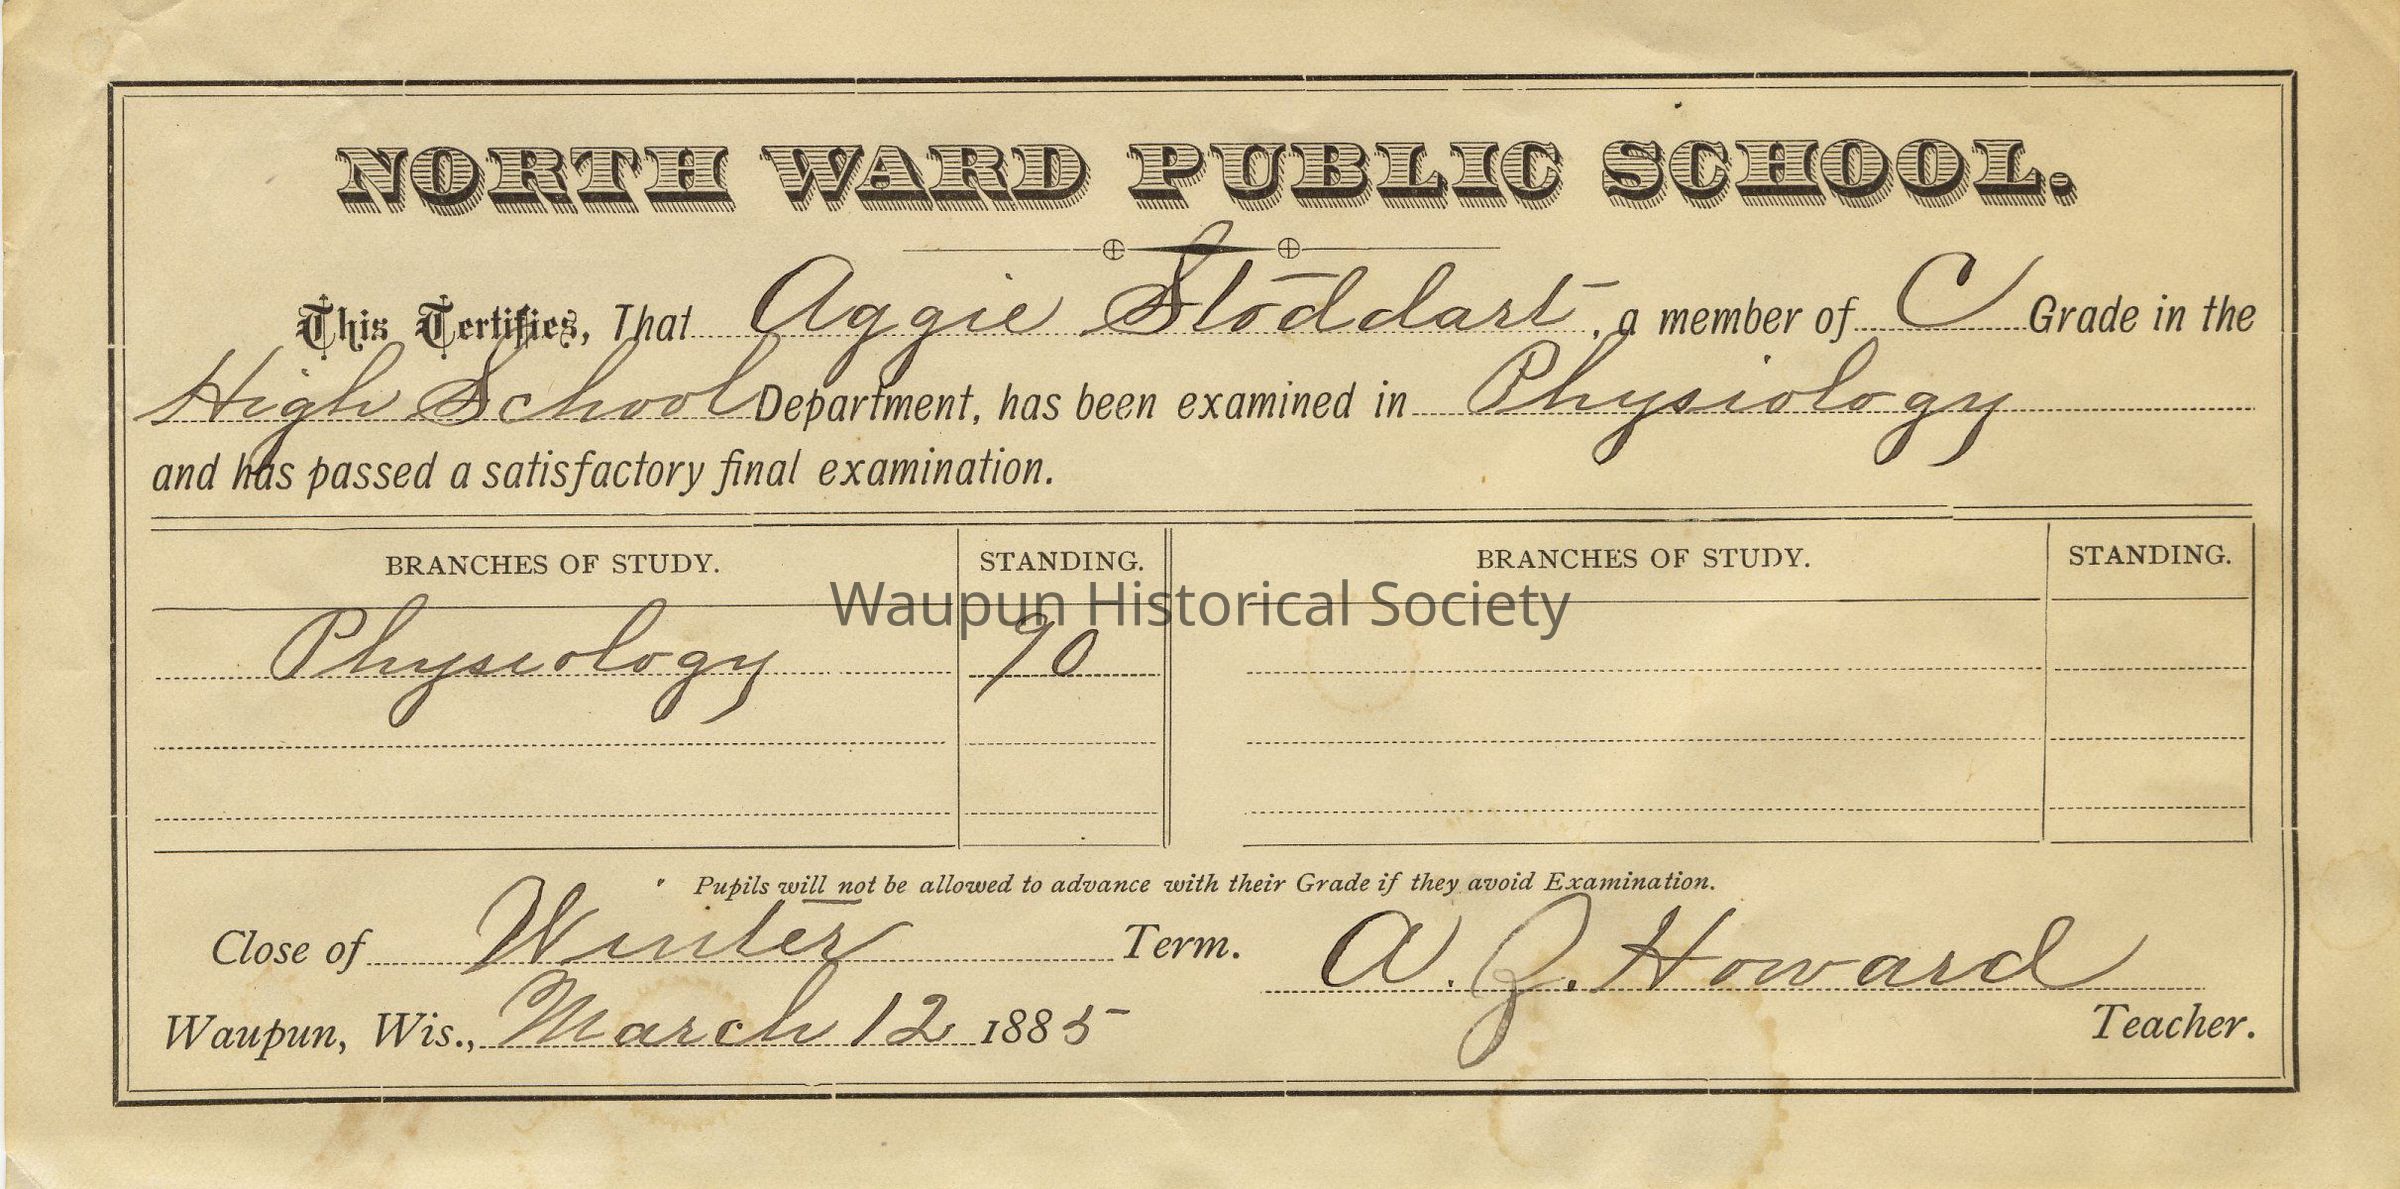 NORTH WARD PUBLIC SCHOOL.
This Certifies, That Aggie Stoddart, a member of C Grade in the
High School Department, has been examined in Physiology
and has passed a satisfactory final examination.
BRANCHES OF STUDY. STANDING. BRANCHES OF STUDY. STANDING.
Waupun Historical Society
Physiology 90
Pupils will not be allowed to advance with their Grade if they avoid Examination.
Close of Winter Term. A. J. Howard
Waupun, Wis., March 12 1885 Teacher.